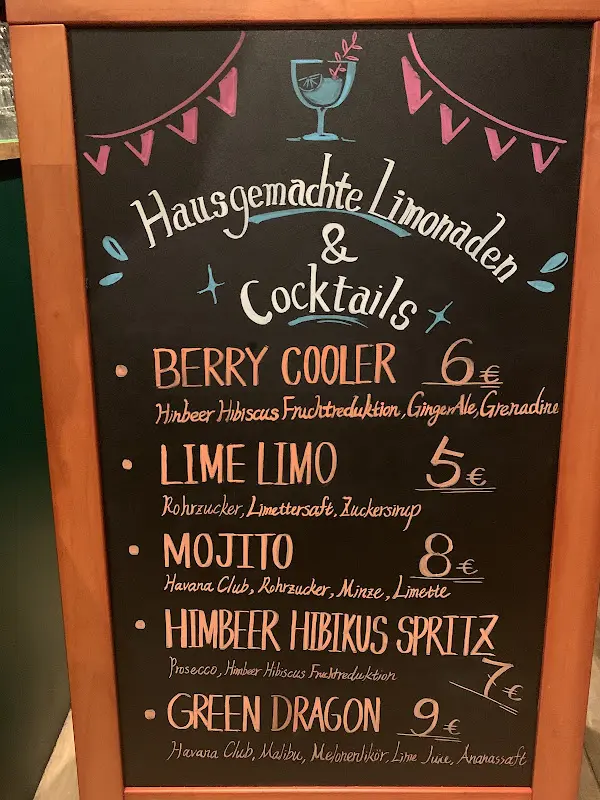 Hausgemachte Limonaden
&
Cocktails
BERRY COOLER 6€
Hinbeer Hibiscus Fruchtreduktion, Ginger Ale, Grenadine
LIME LIMO 5€
Rohrzucker, Limettersaft, Zuckersirup
MOJITO 8€
Havana Club, Rohrzucker, Minze, Limette
HIMBEER HIBIKUS SPRITZ 7€
Prosecco, Himbeer Hibiscus Fruchtreduktion
GREEN DRAGON 9€
Havana Club, Malibu, Melonenlikör, Lime Juice, Ananassaft